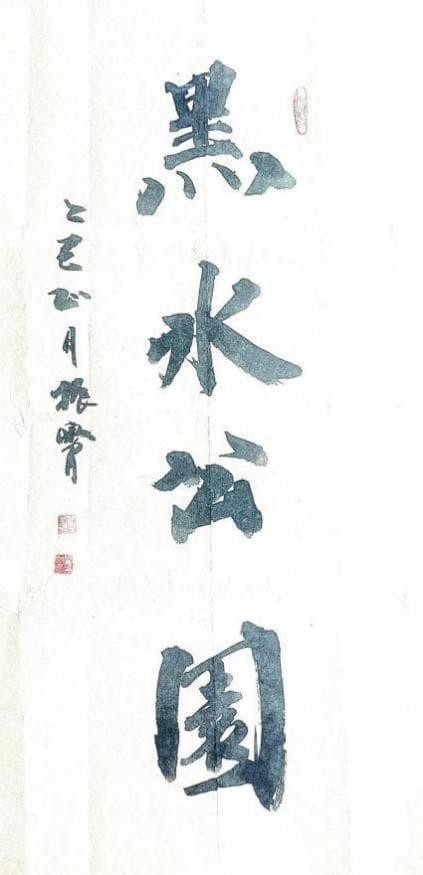 黑水公園
乙巳正月振霄